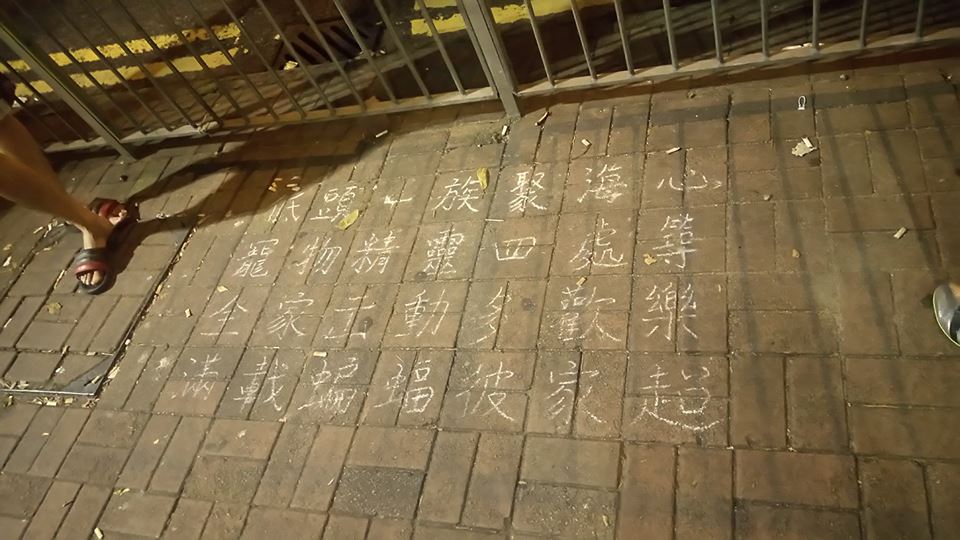 低頭一族聚海心
寵物精靈四處等
全家出動多歡樂
滿載蝙蝠彼家超